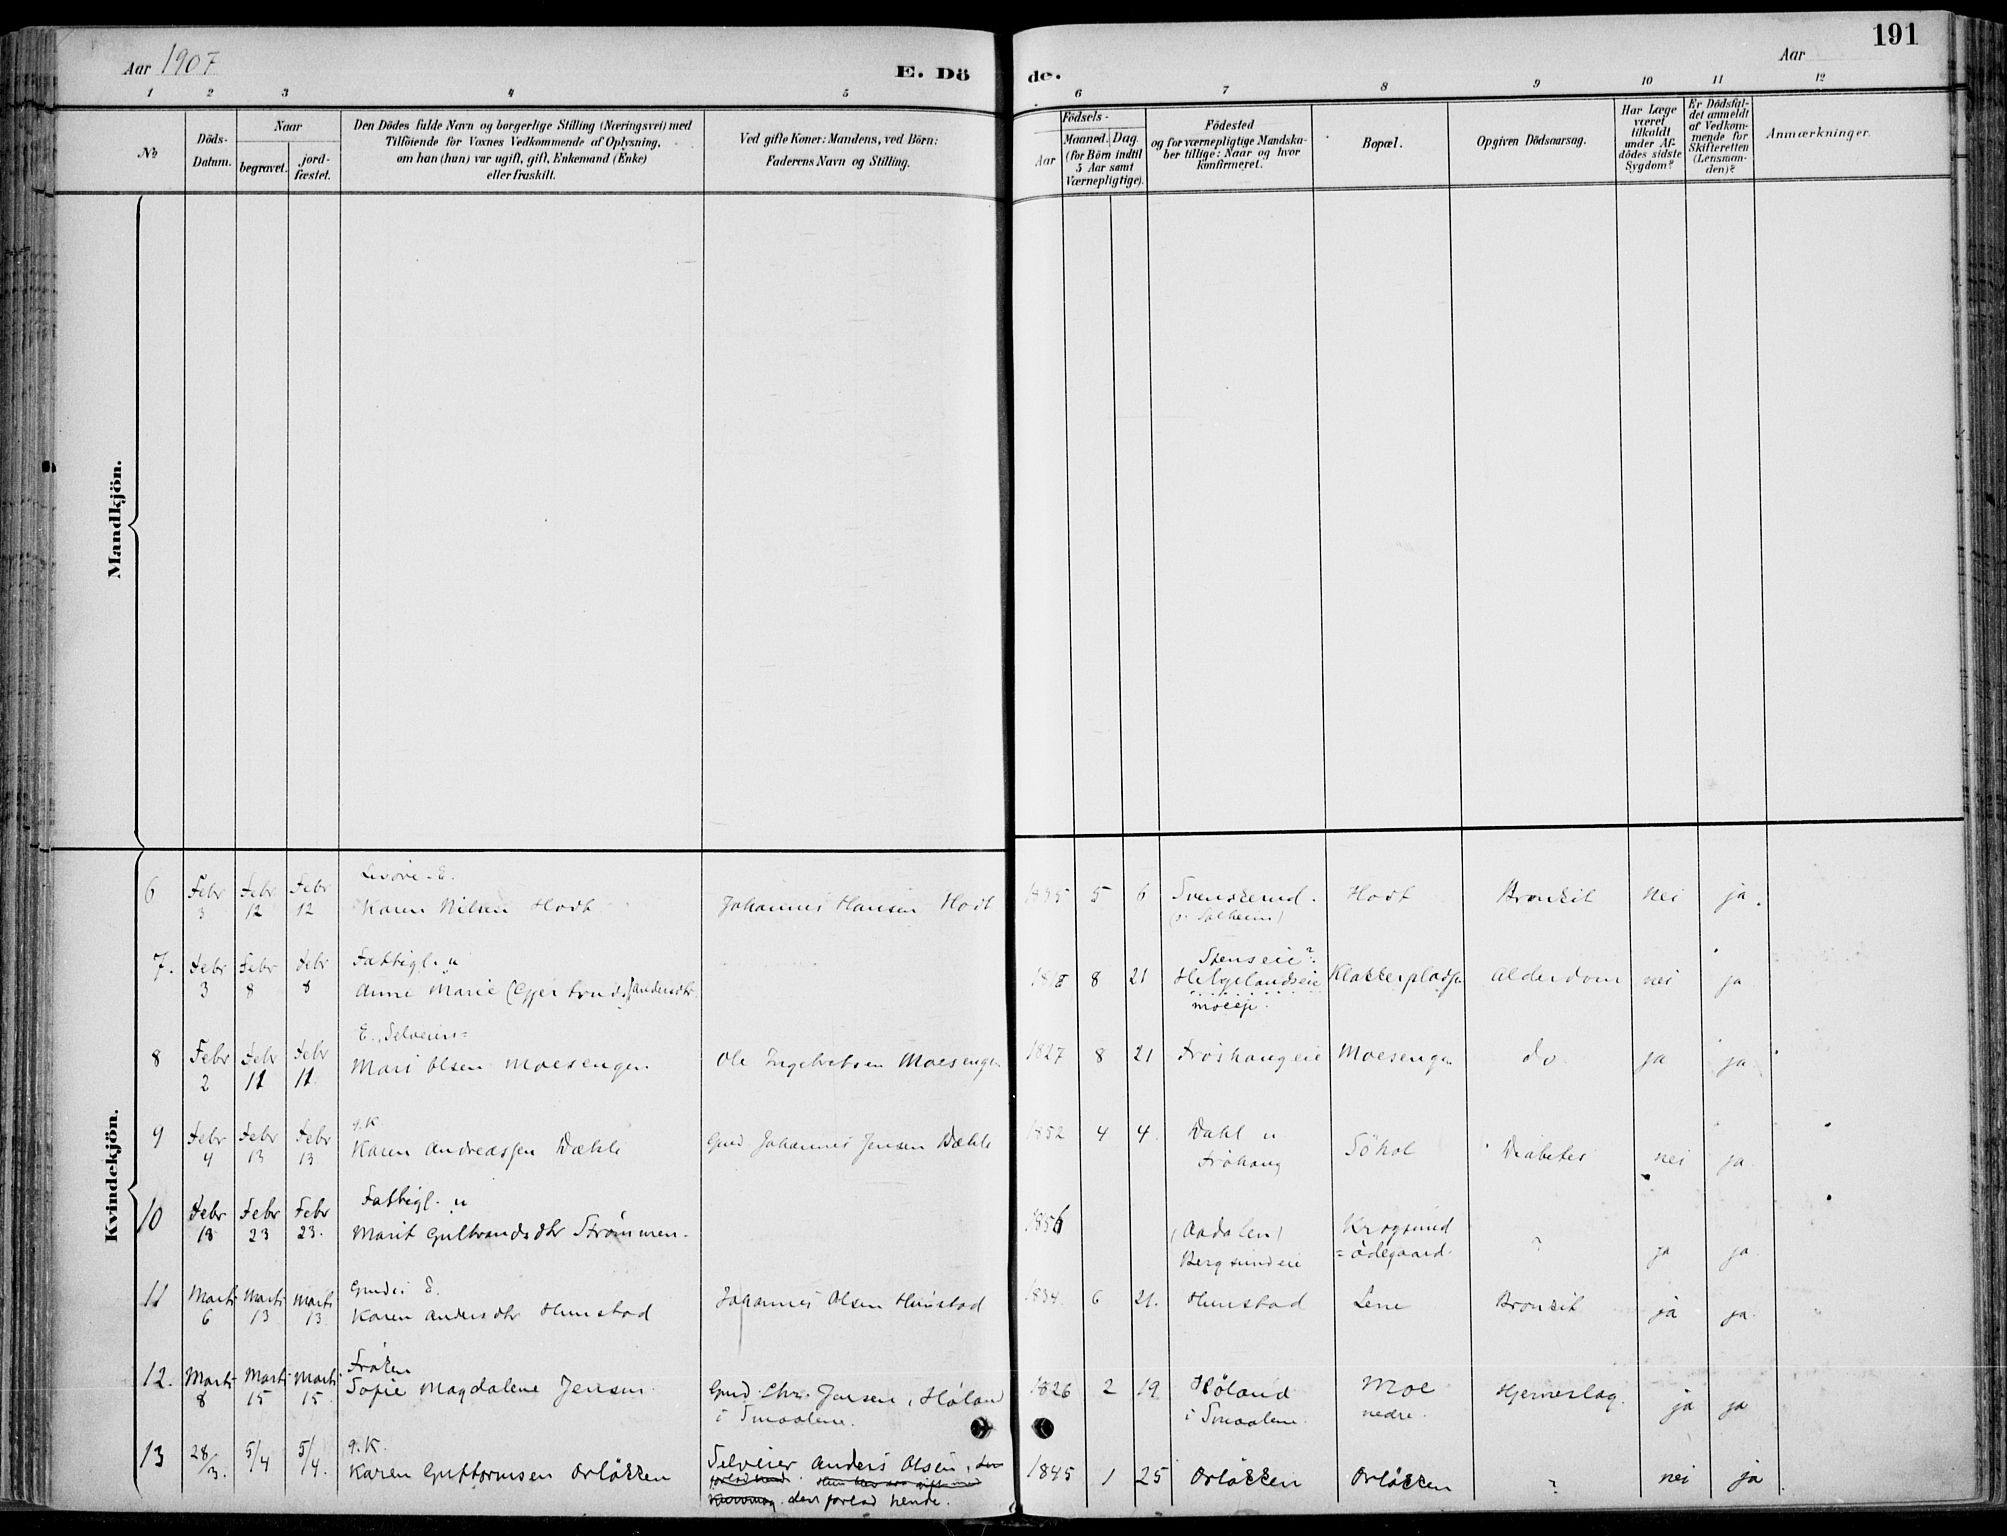 Aar 1907
E. Dö
de.
Aar
191
1 2 3 4 5 6 7 8 9 10 11 12
No
Döds-
Datum.
Naar
begravet.
jord-
fæstet.
Den Dödes fulde Navn og borgerlige Stilling (Næringsvei) med
Tilföiende for Voxnes Vedkommende af Oplysning,
om han (hun) var ugift, gift, Enkemand (Enke)
eller fraskilt.
Ved gifte Koner: Mandens, ved Börn:
Faderens Navn og Stilling.
Födsels-
Aar
Maaned. Dag.
(for Börn indtil
5 Aar samt
Værnepligtige).
Födested
og for værnepligtige Mandska-
ber tillige: Naar og hvor
konfirmeret.
Bopæl.
Opgiven Dödsaarsag.
Har Læge
været
tilkaldt
under Af-
dödes sidste
Sygdom?
Er Dödsfal-
det anmeldt
af Vedkom-
mende for
Skifteretten
(Lensman-
den)?
Anmærkninger.
Mandkjön.
Kvindekjön.
6 Febr 3 Febr 12 Febr 12
Karen Nilsen Hodt Johannes Hansen Hodt 1835 5 6 Svenskerud. Hodt Bronkit nei ja.
(v. Solheim)
7. Febr 3 Febr 8 Febr 8 Fattigl. u
Anne Marie (Gjertrud) Andersdtr 8 21 Stenseie?
Helgelandseie Klakkerpladsen Alderdom nei ja
moeeje.
8 Febr 2 Febr 11 Febr 11 E. Selveiers=
Mari Olsen Moesengen Ole Ingebretsen Moesengen 1827 8 21 Fröshaugeie Moesengen do. ja ja.
9 Febr 4 Febr 13 Febr 13 g.K
Karen Andreassen Dæhli Grd. Johannes Jensen Dæhli 1852 4 4. Dahl u
Fröhaug Söhol Diabetes nei ja.
10 Febr 18 Febr 23 Febr 23. Fattigl. u
Marit Gulbrandsdtr Strömmen. 1856 (Aadalen)
Bergsundeie Krogsund
=ödegaard. ? ja ja.
11 Marts 6 Marts 13 Marts 13 Grdei. E.
Karen Andersdtr Hunstad Johannes Olsen Hunstad 1834. 6 21. Hunstad Lene Bronkit ja ja.
12. Marts 8 Marts 15 Marts 15. Fröken
Sofie Magdalene Jensen Grd. Chr. Jensen, Höland
i Smaalene. 1826 2 19 Höland
i Smaalene. Moe
nedre. Hjerneslag. ja ja
13 28/3. 5/4 5/4. g.K.
Karen Guttormsen Orlökken Selveier Anders Olsen, den
forlod hende. Hun blev saa gift med
den forlod hende. 1845 1 25 Orlökken Orlökken ? nei ja